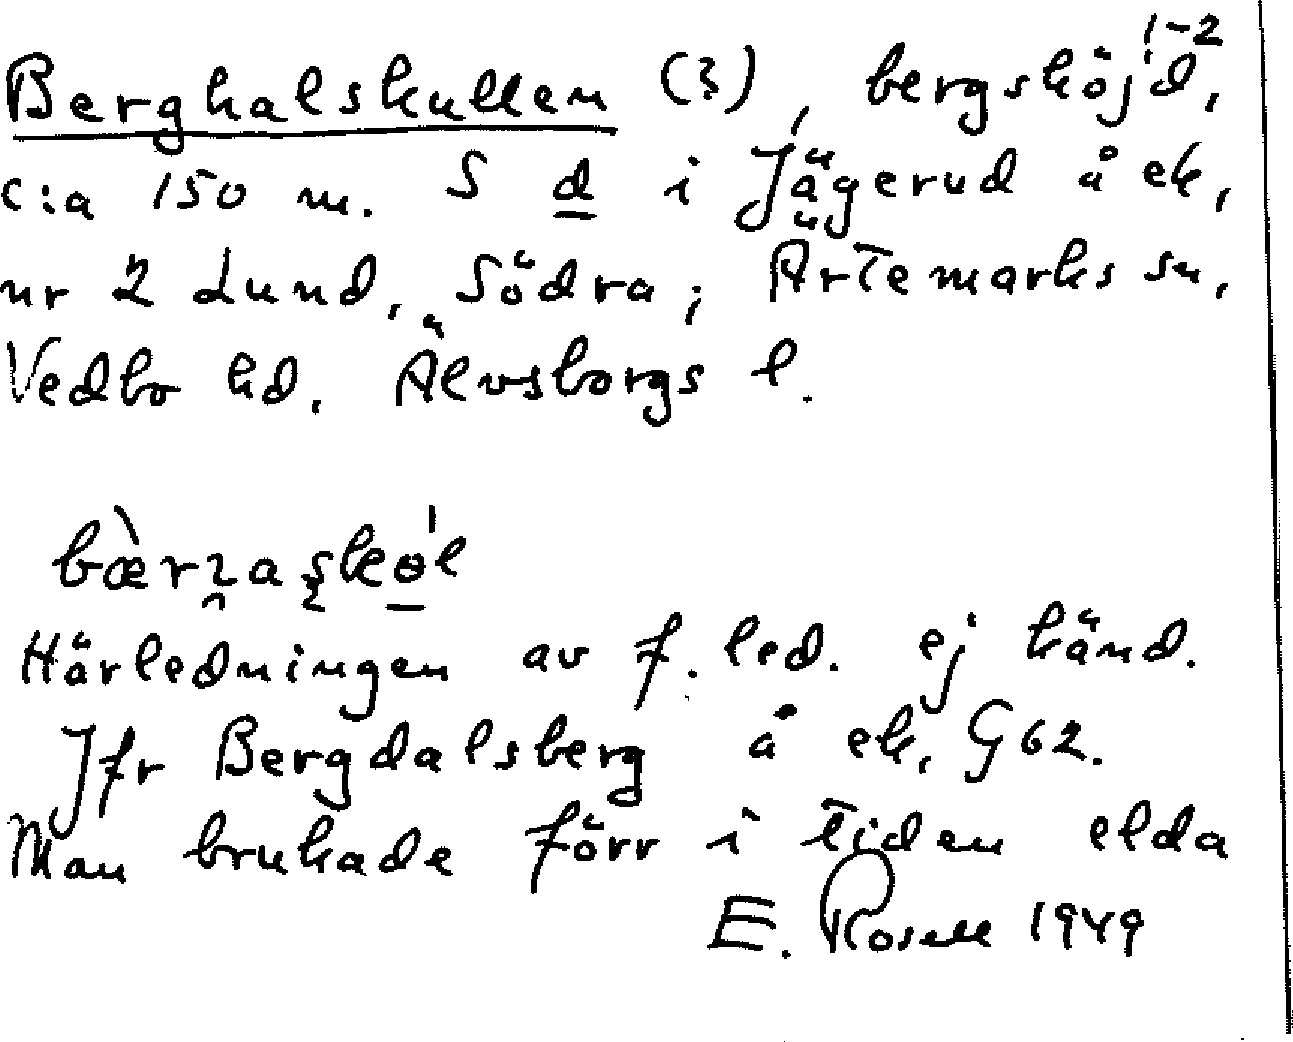 Berghalskullen (?), bergshöjd, 1-2
c:a 150 m. S d i Jägerud å ek,
nr 2 Lund, Södra; Ärtemarks sn,
Vedbo hd. Älvsborgs l.
Härledningen av f. led. ej känd.
Jfr Bergdalsberg å ek, G62.
Man brukade förr i tiden elda
E. Rosell 1949